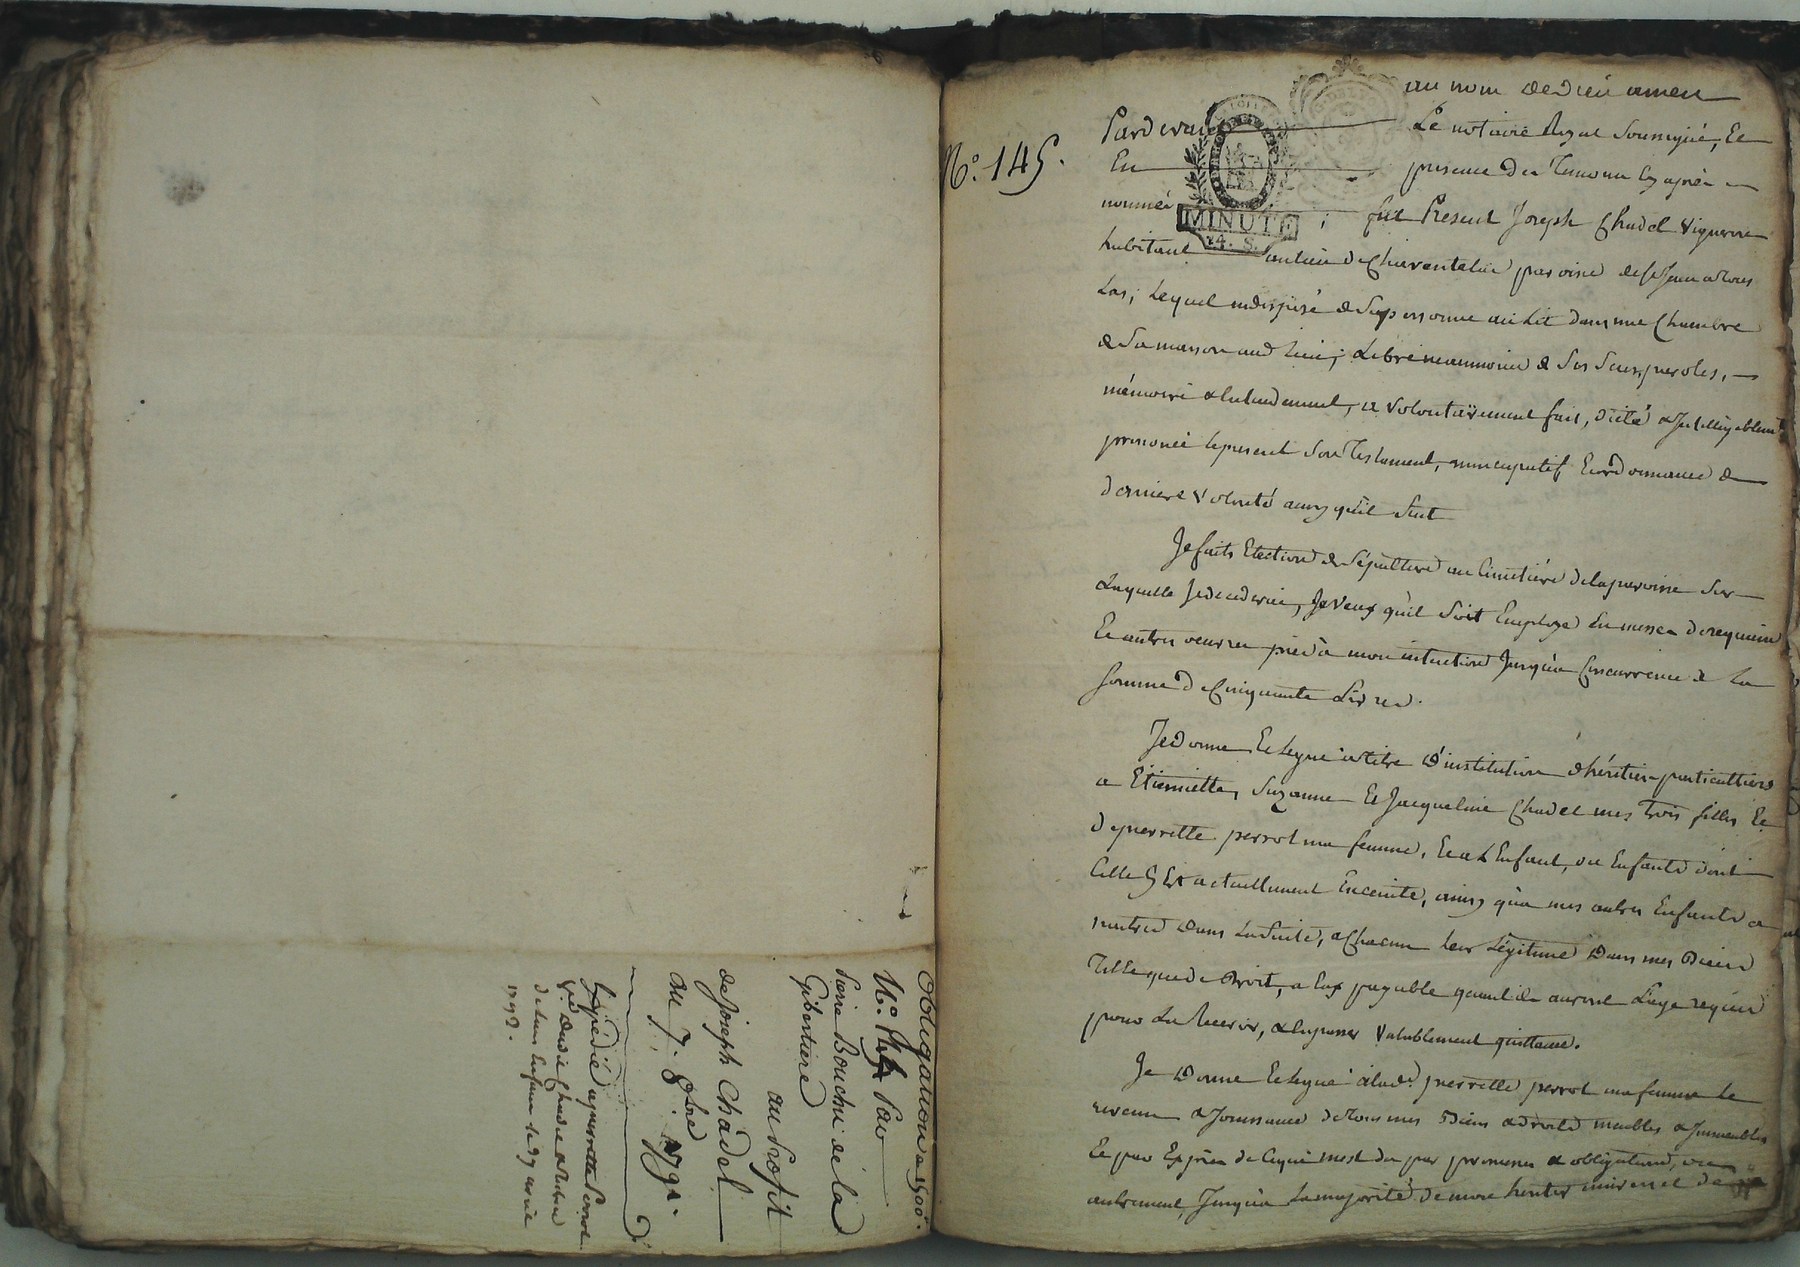 Obligation de 1500#.
N.o
Pierre Bouchi de la
Gibertiere
au Profit
de Joseph Chadel
au 7. 8bre 179
Expédié a pierrette Perrot
vve dudit Chadel
de leurs Enfans le 29 avril
1792.
N.o 145.
au nom de dieu amen
Pardevant Le notaire Royal Soussigné, Et
En presence des Temoins Cy après
nommés ; fut Présent Joseph Chadel Vigneron
MINUTE
4. S.
habitant au lieu de Charentalai paroisse de St Jean
Las; Lequel indisposé de Sa personne au Lit dans une Chambre
de Sa maison aud. lieu; Libre neanmoins de Ses Sens, paroles,
mémoire & Entendement, a volontairement fait, dicté & Intelligiblement
prononcé le present Son Testament, nuncupatif Et ordonnance de
derniere Volonté ainsy qu'il Suit
Je faits Election de Sépulture au Cimetiére de la paroisse Sur
Laquelle Je decederai, Je Veux qu'il Soit Employé En messes de requiem
Et autres oeuvres pies à mon intention Jusqu'a Concurrence de La
Somme de Cinquante Livres.
Je donne Et Legue a titre d'institution d'héritier particulliers
a Etiennette, Suzanne Et Jacqueline Chadel mes trois filles Et
de pierrette perrot ma femme, Et a L'Enfant, ou Enfants dont
Celle Cy Est actuellement Enceinte, ainsy qu'a mes autres Enfants a
naitre dans La Suite, a Chacun leur Légitime dans mes Biens
Telle que de Droit, a Eux payable quand ils auront L'age requis
pour La Recevoir, & En passer Valablement quittance.
Je Donne Et Legue à lad.e pierrette perrot ma femme Le
revenu & Jouissance de tous mes Biens & droits meubles & Immeubles
Et par Exprès de Ce qui m'est du par promesses & obligations, ou
autrement, Jusqu'a La majorité de mon heritier universel